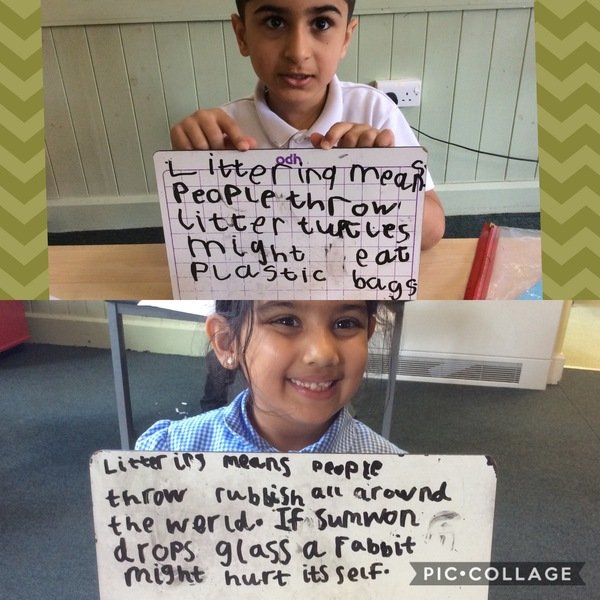 odh
Littering means
People throw
litter turtles
might eat
Plastic bags
Littering means people
throw rubbish all around
the world. If sumwon
drops glass a rabbit
might hurt itsself.
PIC•COLLAGE